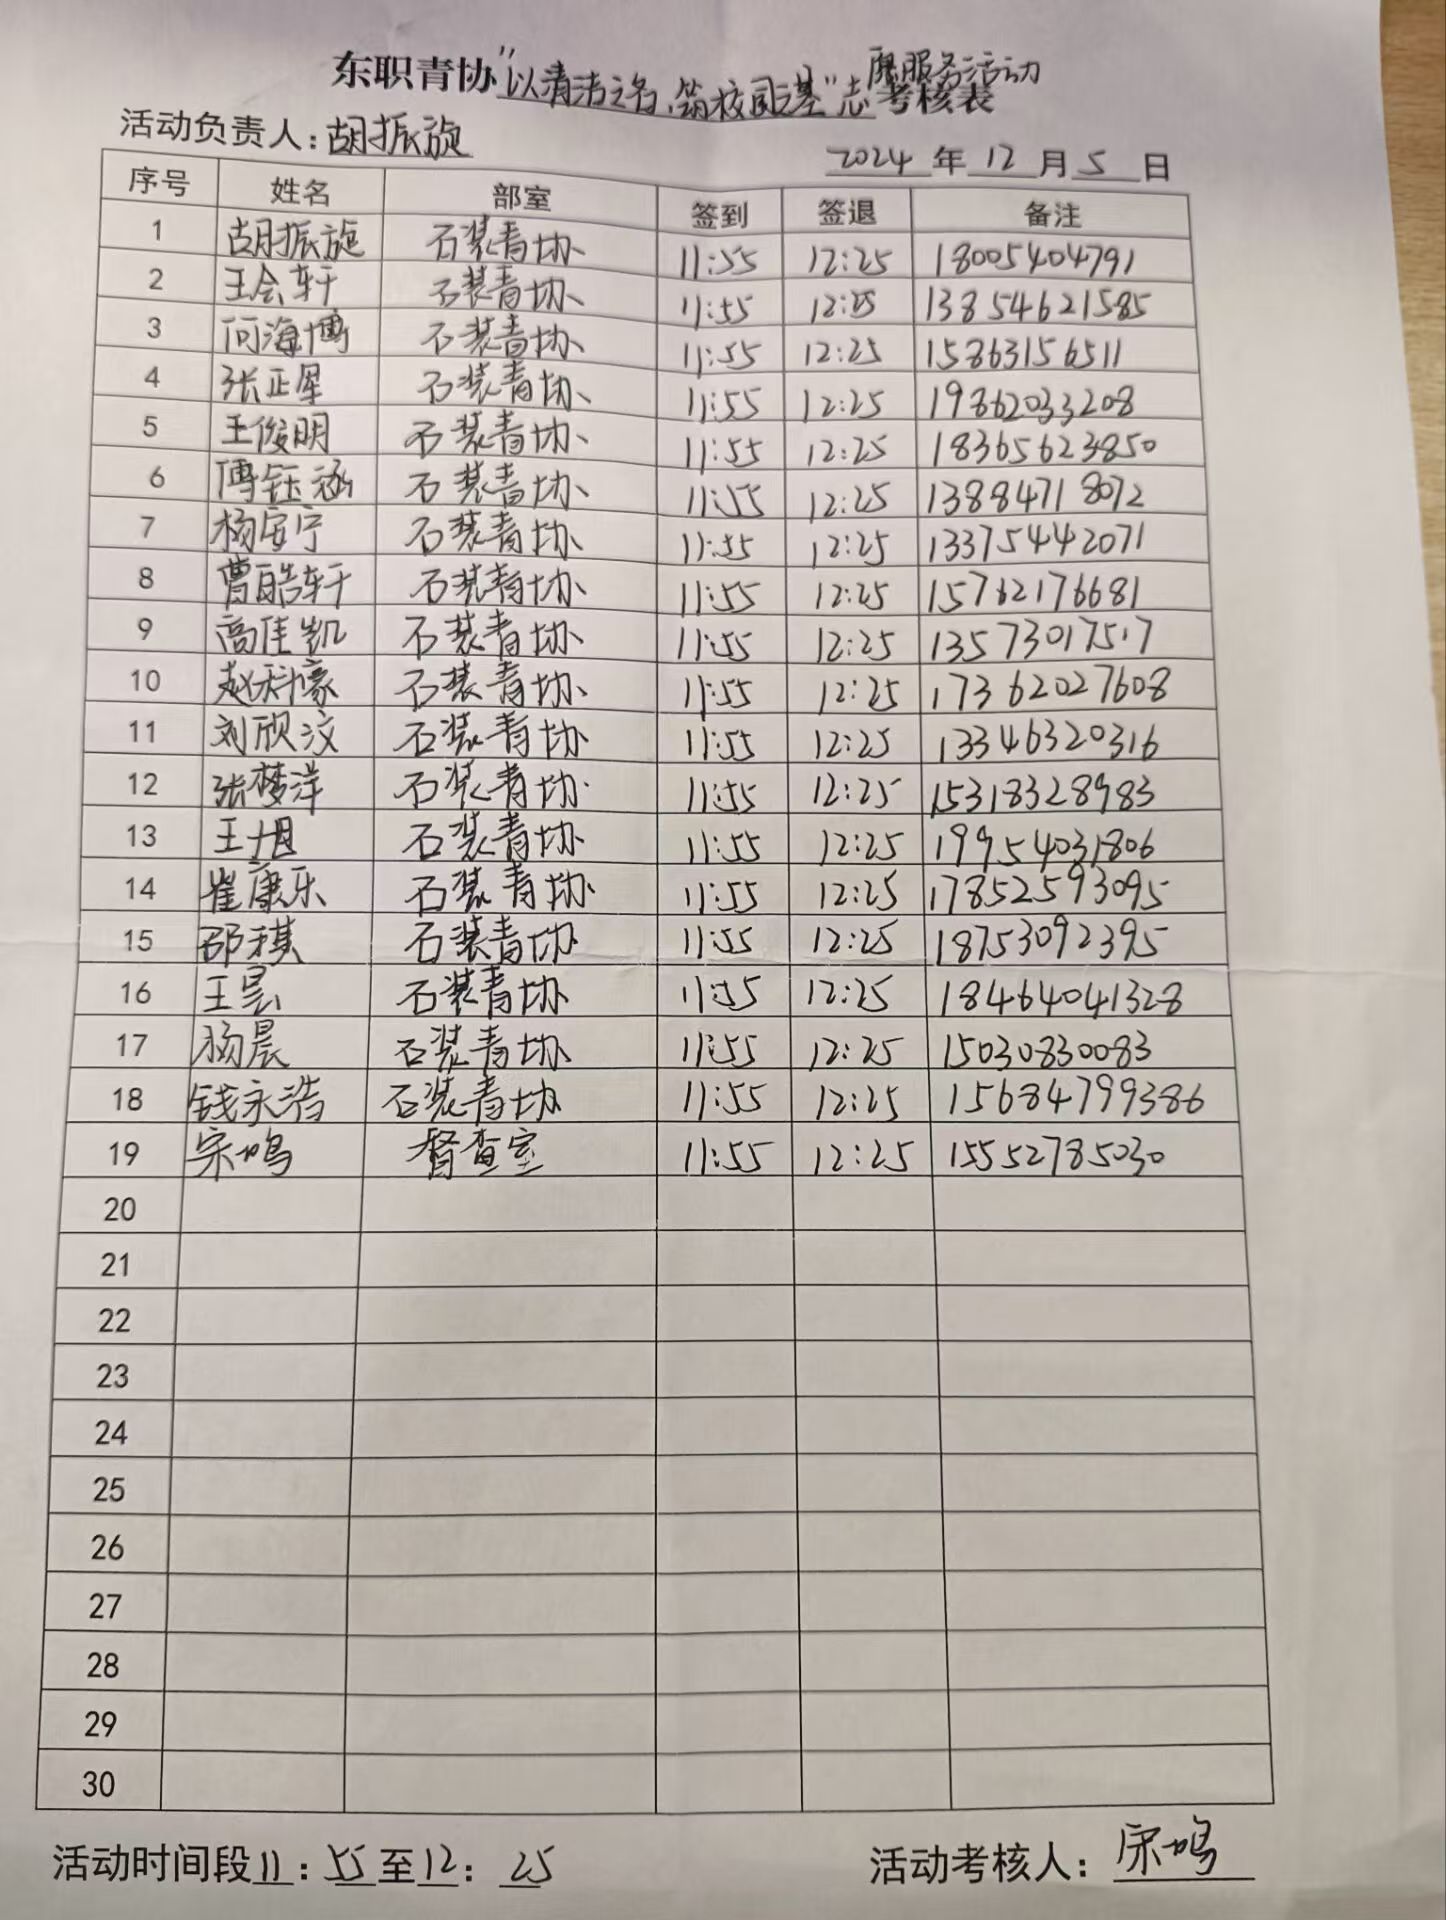 东职青协"以清洁之名,筑校园之基"志愿服务活动考核表
活动负责人:胡振旋
2024 年 12 月 5 日
序号 姓名 部室 签到 签退 备注
1 胡振旋 石装青协 11:55 12:25 18005404791
2 王会轩 石装青协 11:55 12:25 13854621585
3 何海博 石装青协 11:55 12:25 15863156511
4 张正星 石装青协 11:55 12:25 19862033208
5 王俊明 石装青协 11:55 12:25 18365623850
6 傅钰涵 石装青协 11:55 12:25 13884718072
7 杨安宁 石装青协 11:55 12:25 13375442071
8 曹皓轩 石装青协 11:55 12:25 15762176681
9 高佳凯 石装青协 11:55 12:25 13573017517
10 赵梓豪 石装青协 11:55 12:25 17362027608
11 刘欣汶 石装青协 11:55 12:25 13346320316
12 张梦洋 石装青协 11:55 12:25 15318328983
13 王旭 石装青协 11:55 12:25 19954031806
14 崔康乐 石装青协 11:55 12:25 17852593095
15 邵祺 石装青协 11:55 12:25 18753092395
16 王昙 石装青协 11:55 12:25 18464041328
17 杨晨 石装青协 11:55 12:25 15030830083
18 钱永浩 石装青协 11:55 12:25 15684799386
19 宋鸣 督查室 11:55 12:25 15552785030
20
21
22
23
24
25
26
27
28
29
30
活动时间段11:55至12:25
活动考核人:宋鸣